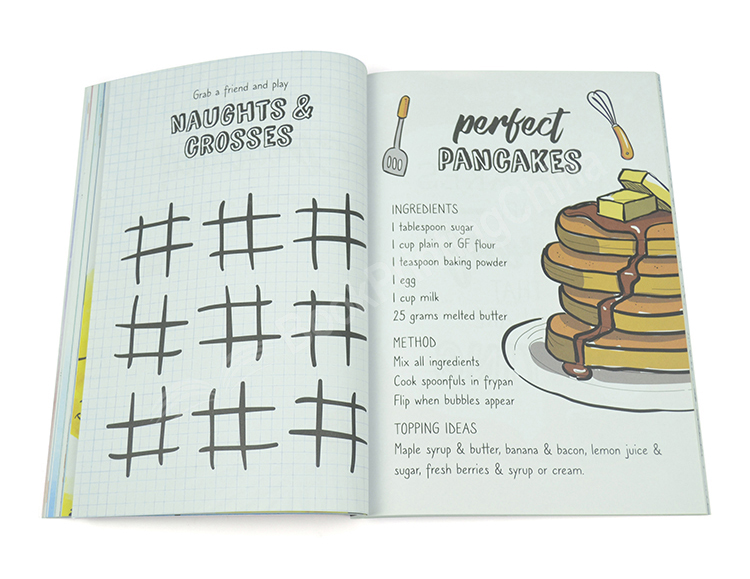 Grab a friend and play
NAUGHTS &
CROSSES
perfect
PANCAKES
INGREDIENTS
1 tablespoon sugar
1 cup plain or GF flour
1 teaspoon baking powder
1 egg
1 cup milk
25 grams melted butter
METHOD
Mix all ingredients
Cook spoonfuls in frypan
Flip when bubbles appear
TOPPING IDEAS
Maple syrup & butter, banana & bacon, lemon juice &
sugar, fresh berries & syrup or cream.